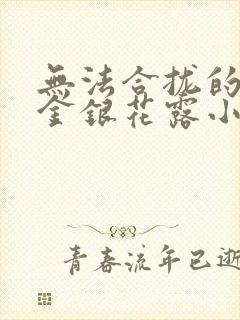 無法合拢的
金銀花露小
青春流年已逝